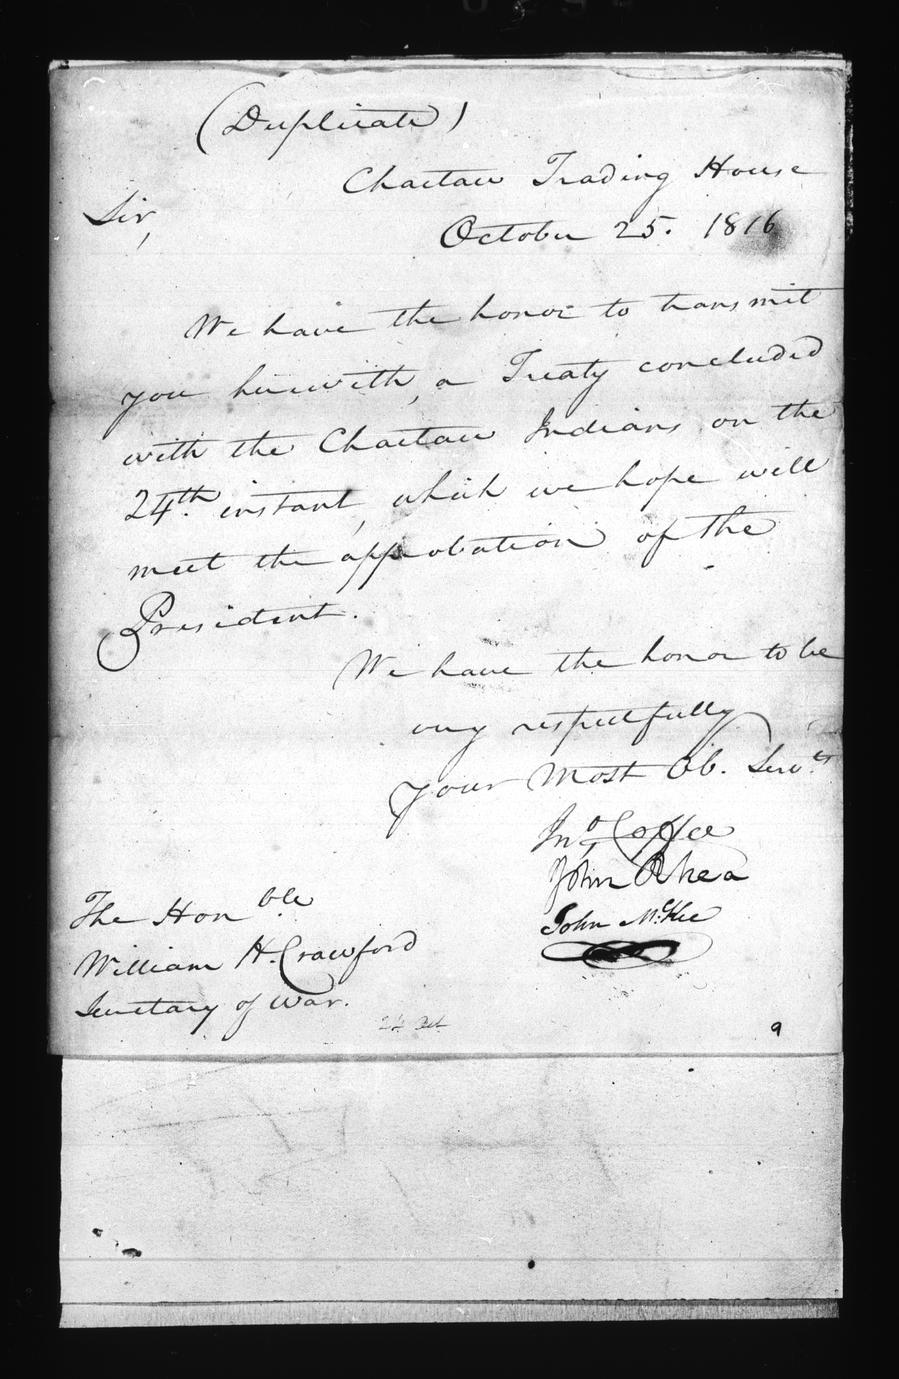 (Duplicate)
Chactaw Trading House
Sir,
October 25. 1816
We have the honor to transmit
you herewith, a Treaty concluded
with the Chactaw Indians on the
24th. instant, which we hope will
meet the approbation of the
President.
We have the honor to be
very respectfully
your Most Ob. Servts
Jno. Coffee
John Rhea
John McKee
The Honble
William H. Crawford
Secretary of War.
9